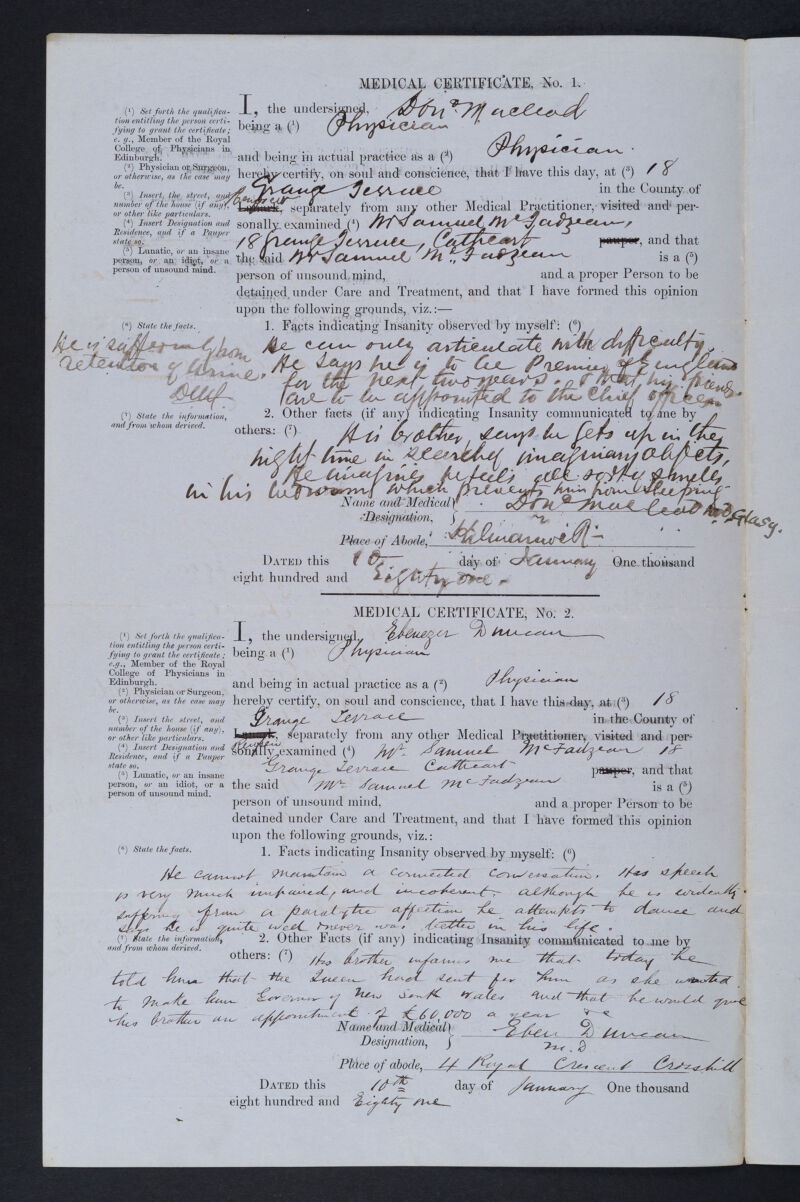 MEDICAL CERTIFICATE, No. 1.
(¹) Set forth the qualifica-
tion entitling the person certi-
fying to grant the certificate;
e. g., Member of the Royal
College of Physicians in
Edinburgh.
(²) Physician or Surgeon,
or otherwise, as the case may
be.
(³) Insert, the street, and
number of the house (if any),
or other like particulars.
(⁴) Insert Designation and
Residence, and if a Pauper
state so.
(⁵) Lunatic, or an insane
person, or an idiot, or a
person of unsound mind.
I, the undersigned, Donᵈ Macleod
being a (¹) Physician
and being in actual practice as a (²) Physician.
hereby certify, on soul and conscience, that I have this day, at (³) 18
Grange Terrace in the County of
Renfrew
Lanark, separately from any other Medical Practitioner, visited and per-
sonally examined (⁴) Mr Samuel McFadzean,
18 Grange Terrace, Cathcart pauper, and that
the said Mr Samuel Mc Fadzean is a (⁵)
person of unsound mind, and a proper Person to be
detained under Care and Treatment, and that I have formed this opinion
upon the following grounds, viz.:—
(⁶) State the facts.
1. Facts indicating Insanity observed by myself: (⁶)
He is suffering from
retention of urine.
He can only articulate with difficulty.
He says he is to be Premier of England
for the next two years. & that his friends
are to be appointed to the chief offices
(⁷) State the information,
and from whom derived.
2. Other facts (if any) indicating Insanity communicated to me by
others: (⁷) His brother, says he gets up in the
night time in search of imaginary objects,
He imagines he feels all sorts of smells
in his bedrooms which prevents him from sleeping
Name and Medical Designation, Donᵈ Macleod M.D. Glasg.
Place of Abode, Kilmarnock
DATED this 10 day of January One thousand
eight hundred and Eighty one.
MEDICAL CERTIFICATE, No. 2.
(¹) Set forth the qualifica-
tion entitling the person certi-
fying to grant the certificate;
e.g., Member of the Royal
College of Physicians in
Edinburgh.
(²) Physician or Surgeon,
or otherwise, as the case may
be.
(³) Insert the street, and
number of the house (if any),
or other like particulars.
(⁴) Insert Designation and
Residence, and if a Pauper
state so.
(⁵) Lunatic, or an insane
person, or an idiot, or a
person of unsound mind.
I, the undersigned, Ebenezer Duncan
being a (¹) Physician
and being in actual practice as a (²) Physician
hereby certify, on soul and conscience, that I have this day, at (³) 18
Grange Terrace in the County of
Lanark, separately from any other Medical Practitioner, visited and per-
Renfrew
sonally examined (⁴) Mr. Samuel McFadzean 18
Grange Terrace Cathcart pauper, and that
the said Mr Samuel McFadzean is a (⁵)
person of unsound mind, and a proper Person to be
detained under Care and Treatment, and that I have formed this opinion
upon the following grounds, viz.:
(⁶) State the facts.
1. Facts indicating Insanity observed by myself: (⁶)
He cannot maintain a connected conversation. His speech
is very much impaired, and incoherent; although he is evidently
suffering from a paralytic affection he attempts to dance and
says he is quite well & never was better in his life.
(⁷) State the information,
and from whom derived.
2. Other Facts (if any) indicating Insanity communicated to me by
others: (⁷) His brother informs me that today he
told him that the Queen had sent for him as she wanted
to make him Governor of New South Wales and that he would give
his brother an appointment of £60,000 a year &c
Name and Medical Designation, Eben Duncan
M.D
Place of abode, 4 Royal Crescent Crosshill
DATED this 10th day of January One thousand
eight hundred and Eighty one